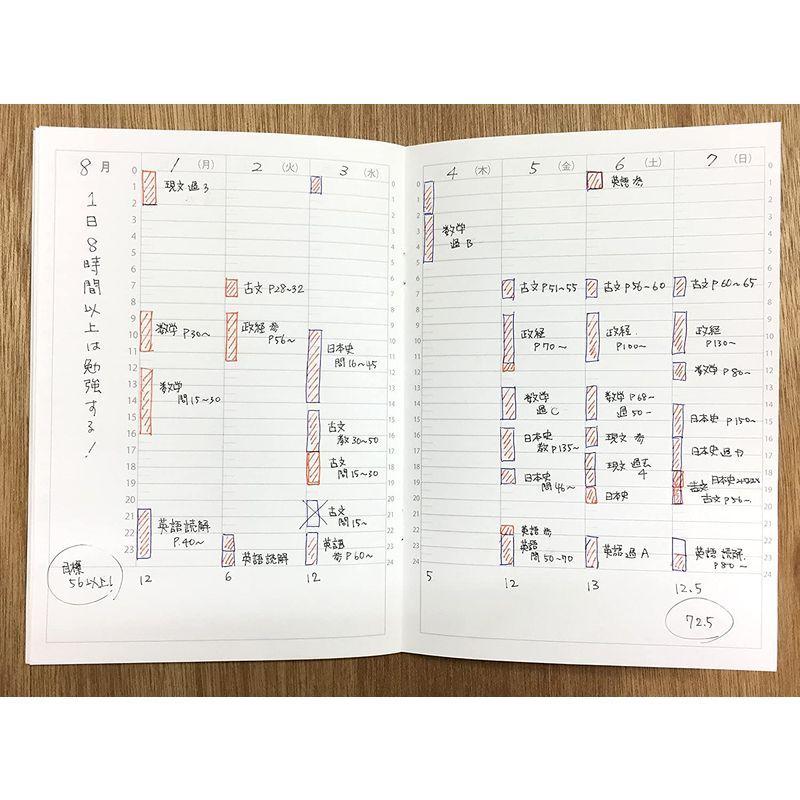 8月
1日8時間以上は勉強する!
目標
56以上!
1 (月)
現文過3
数学 P30〜
数学
問15-30
英語読解
P.40〜
12
2 (火)
古文 P28〜32
政経参
P56〜
英語読解
6
3 (水)
日本史
問16〜45
古文
教30〜50
古文
問15〜30
古文
問15〜
英語
参P60〜
12
4 (木)
数学
過B
5
5 (金)
古文 P51〜55
政経
P70〜
数学
過C
日本史
教P135〜
日本史
問46〜
英語参
英語
問50〜70
12
6 (土)
英語参
古文 P56〜60
政経.
P100〜
数学P68〜
過50-
現文参
現文過去
4
日本史
英語過A
13
7 (日)
古文P60〜65
政経
P130〜
数学P80〜
日本史P150〜
日本史過
日本史
古文
古文P56〜
英語読解.
P80〜
12.5
72.5
0
1
2
3
4
5
6
7
8
9
10
11
12
13
14
15
16
17
18
19
20
21
22
23
24